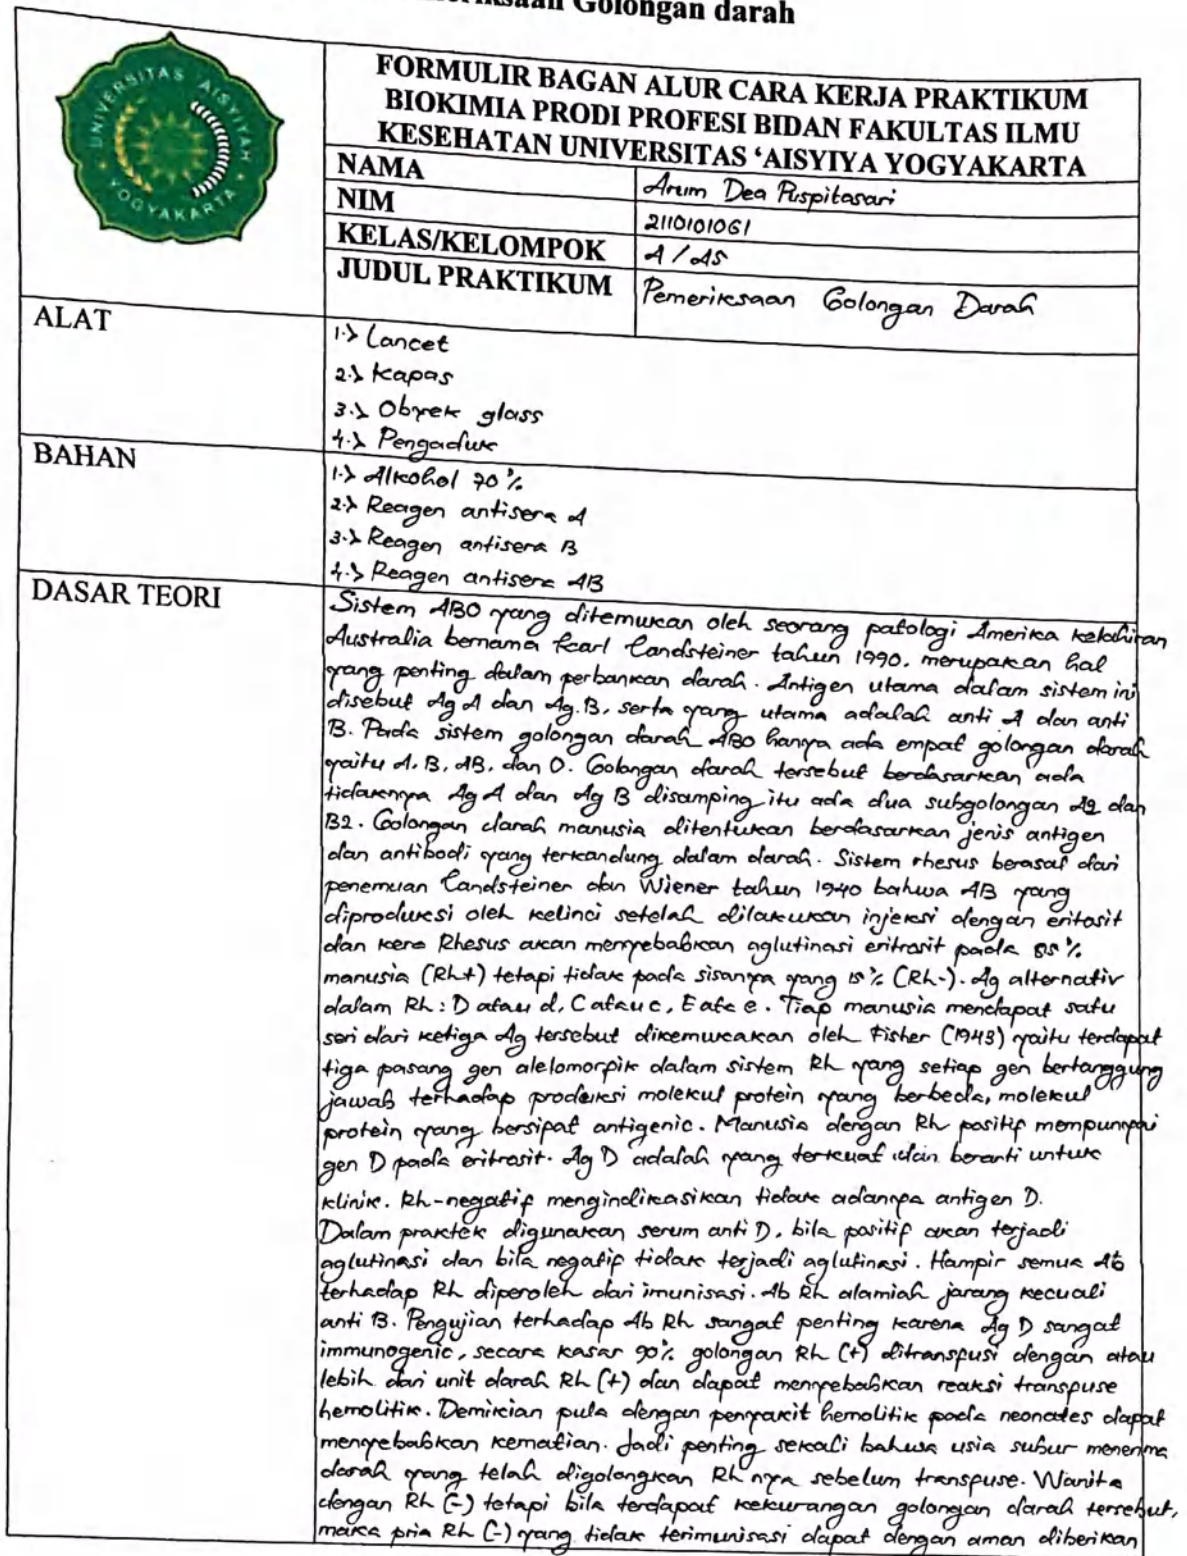 Golongan darah
UNIVERSITAS 'AISYIYAH
YOGYAKARTA
FORMULIR BAGAN ALUR CARA KERJA PRAKTIKUM
BIOKIMIA PRODI PROFESI BIDAN FAKULTAS ILMU
KESEHATAN UNIVERSITAS ‘AISYIYA YOGYAKARTA
NAMA Arum Dea Puspitasari
NIM 2110101061
KELAS/KELOMPOK A / A5
JUDUL PRAKTIKUM Pemeriksaan Golongan Darah
ALAT
1.) Lancet
2.) Kapas
3.) Obyek glass
4.) Pengaduk
BAHAN
1.) Alkohol 70%
2.) Reagen antisera A
3.) Reagen antisera B
4.) Reagen antisera AB
DASAR TEORI
Sistem ABO yang ditemukan oleh seorang patologi Amerika kelahiran
Australia bernama Karl Landsteiner tahun 1990. merupakan hal
yang penting dalam perbankan darah. Antigen utama dalam sistem ini
disebut Ag A dan Ag.B, serta yang utama adalah anti A dan anti
B. Pada sistem golongan darah ABO hanya ada empat golongan darah
yaitu A, B, AB, dan O. Golongan darah tersebut berdasarkan ada
tidaknya Ag A dan Ag B disamping itu ada dua subgolongan A2 dan
B2. Golongan darah manusia ditentukan berdasarkan jenis antigen
dan antibodi yang terkandung dalam darah. Sistem rhesus berasal dari
penemuan Landsteiner dan Wiener tahun 1940 bahwa AB yang
diproduksi oleh kelinci setelah dilakukan injeksi dengan eritosit
dan kera Rhesus akan menyebabkan aglutinasi eritrosit pada 85%
manusia (Rh+) tetapi tidak pada sisanya yang 15% (Rh-). Ag alternativ
dalam Rh : D atau d, C atau c, E ata e. Tiap manusia mendapat satu
seri dari ketiga Ag tersebut dikemukakan oleh Fisher (1943) yaitu terdapat
tiga pasang gen alelomorpik dalam sistem Rh yang setiap gen bertanggung
jawab terhadap produksi molekul protein yang berbeda, molekul
protein yang bersipat antigenic. Manusia dengan Rh positif mempunyai
gen D pada eritrosit. Ag D adalah yang terkuat dan berarti untuk
klinik. Rh-negatif mengindikasikan tidak adanya antigen D.
Dalam praktek digunakan serum anti D, bila positif akan terjadi
aglutinasi dan bila negatif tidak terjadi aglutinasi. Hampir semua Ab
terhadap Rh diperoleh dari imunisasi. Ab Rh alamiah jarang kecuali
anti B. Pengujian terhadap Ab Rh sangat penting karena Ag D sangat
immunogenic, secara kasar 90% golongan Rh (+) ditranspusi dengan atau
lebih dari unit darah Rh (+) dan dapat menyebabkan reaksi transpuse
hemolitik. Demikian pula dengan penyakit hemolitik pada neonates dapat
menyebabkan kematian. Jadi penting sekali bahwa usia subur menerima
darah yang telah digolongkan Rh nya sebelum transpuse. Wanita
dengan Rh (-) tetapi bila terdapat kekurangan golongan darah tersebut,
maka pria Rh (-) yang tidak terimunisasi dapat dengan aman diberikan